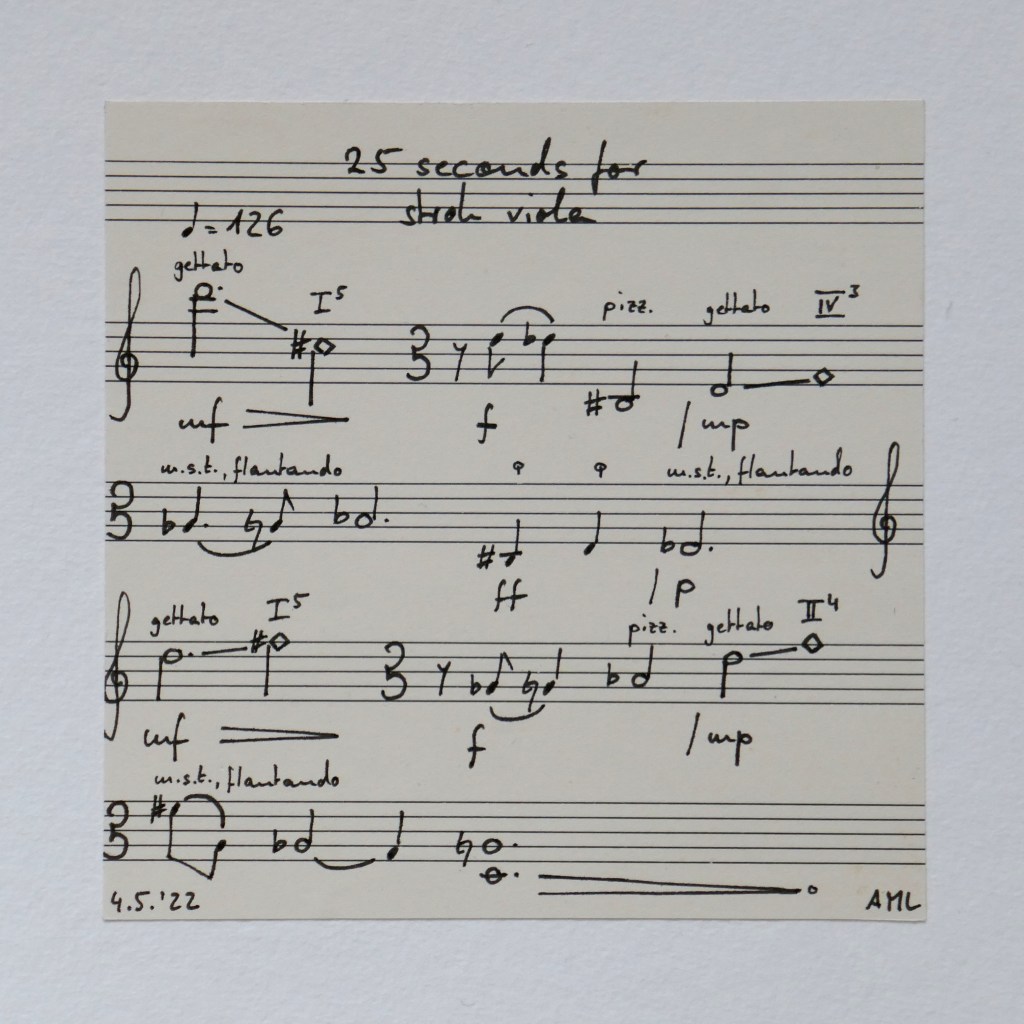 25 seconds for
stroh viola
= 126
gettato
I5 pizz. gettato IV3
mf f / mp
m.s.t., flautando m.s.t., flautando
ff / p
gettato I5 pizz. gettato II4
mf f / mp
m.s.t., flautando
4.5.'22 AML